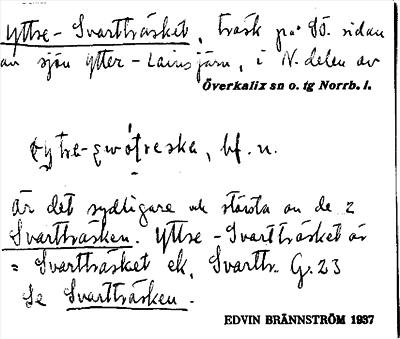 Yttre-Svartträsket, träsk på SÖ. sidan
av sjön Ytter-Lainsjärn, i N. delen av
Överkalix sn o. tg Norrb. l.
bf. n.
Är det sydligare och största av de 2
Svartträsken. Yttre-Svartträsket är
= Svartträsket ek, Svarttr. G. 23
Se Svartträsken.
EDVIN BRÄNNSTRÖM 1937